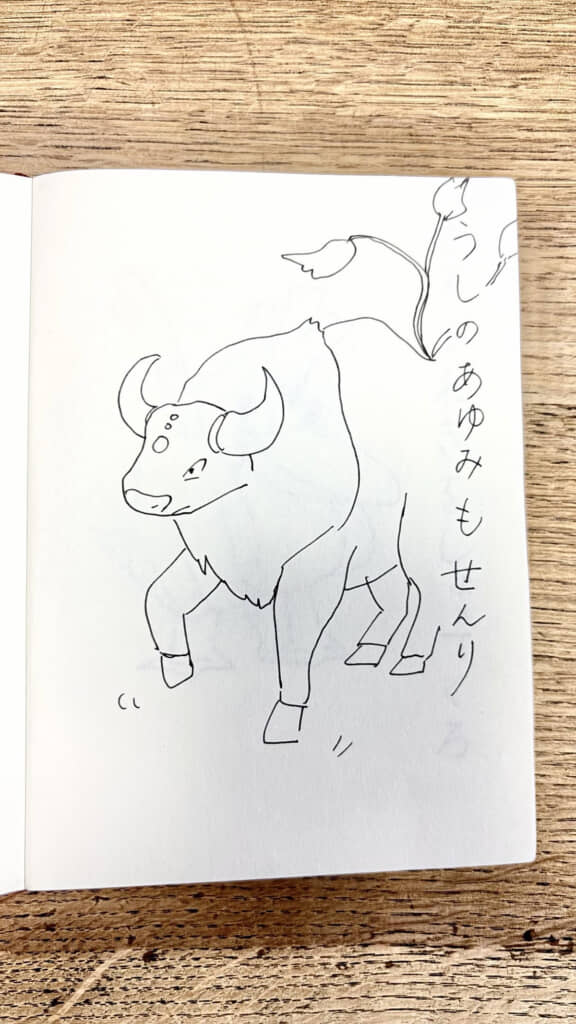 うしのあゆみもせんり